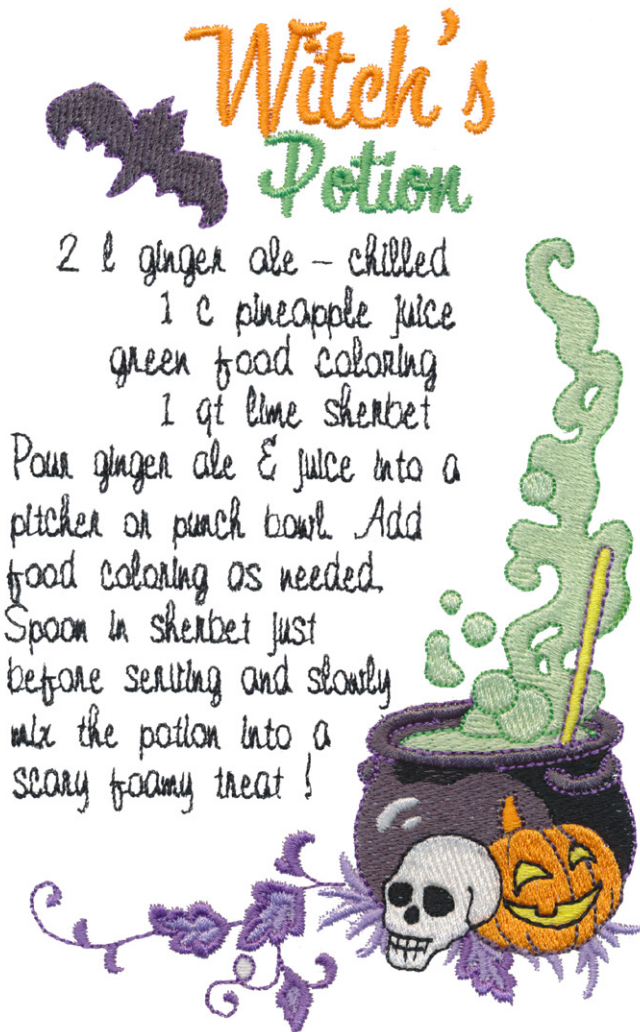 Witch's
Potion
2 l ginger ale - chilled
1 c pineapple juice
green food coloring
1 qt lime sherbet
Pour ginger ale & juice into a
pitcher or punch bowl. Add
food coloring as needed.
Spoon in sherbet just
before serving and slowly
mix the potion into a
scary foamy treat!